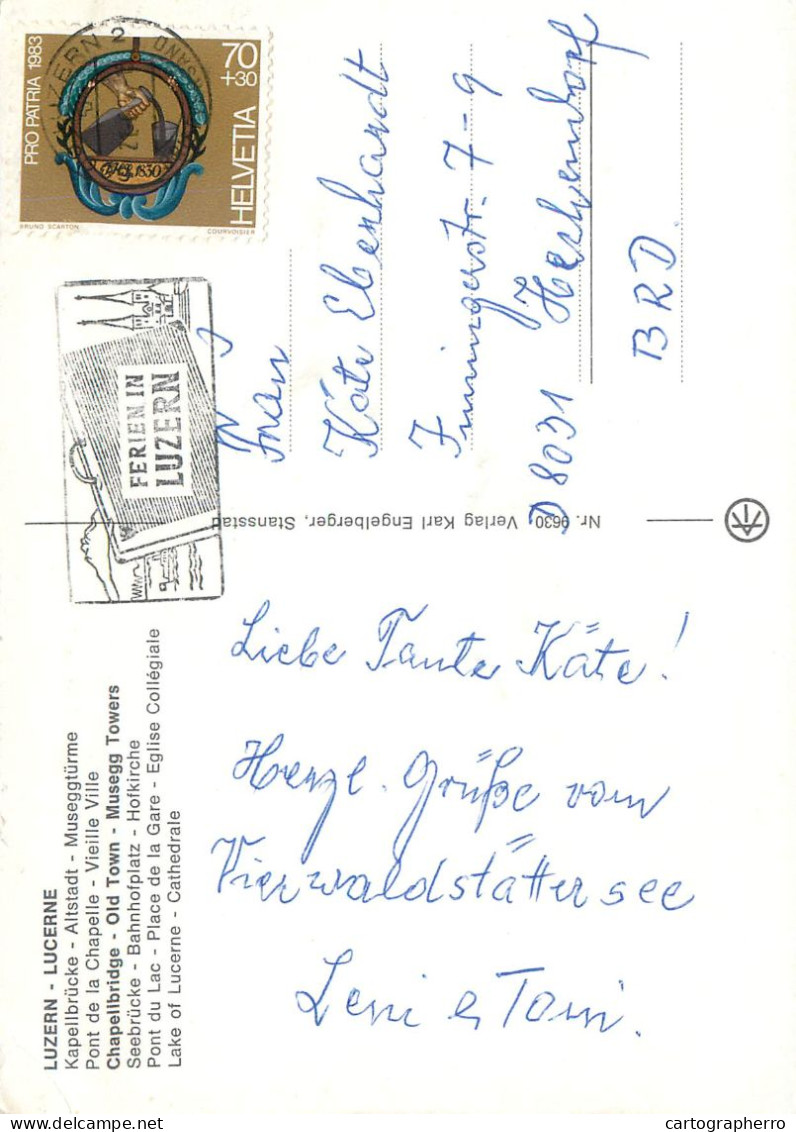 LUZERN - LUCERNE
Kapellbrücke - Altstadt - Museggtürme
Pont de la Chapelle - Vieille Ville
Chapellbridge - Old Town - Musegg Towers
Seebrücke - Bahnhofplatz - Hofkirche
Pont du Lac - Place de la Gare - Eglise Collégiale
Lake of Lucerne - Cathedrale
Liebe Tante Käte!
Herzl. Grüße vom
Vierwaldstättersee
Leni & Toni.
Nr. 9630 Verlag Karl Engelberger, Stansstad
PRO PATRIA 1983
70
+30
HELVETIA
1830
BRUNO SCARTON
COURVOISIER
LUZERN 2
FERIEN IN
LUZERN
Frau
Käte Eberhardt
7-9
D 8031 Hechendorf
BRD
www.delcampe.net
cartographerro